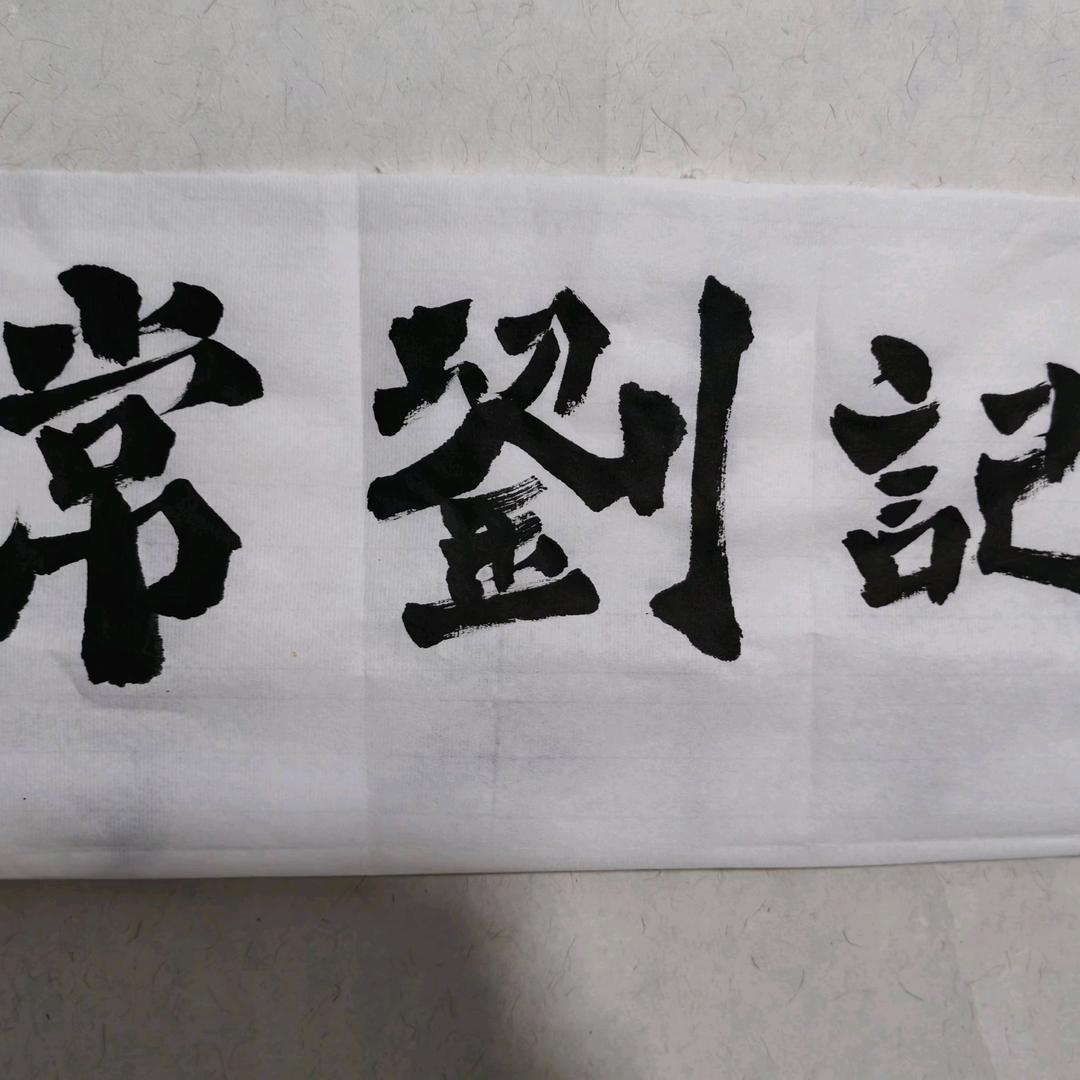 常劉記